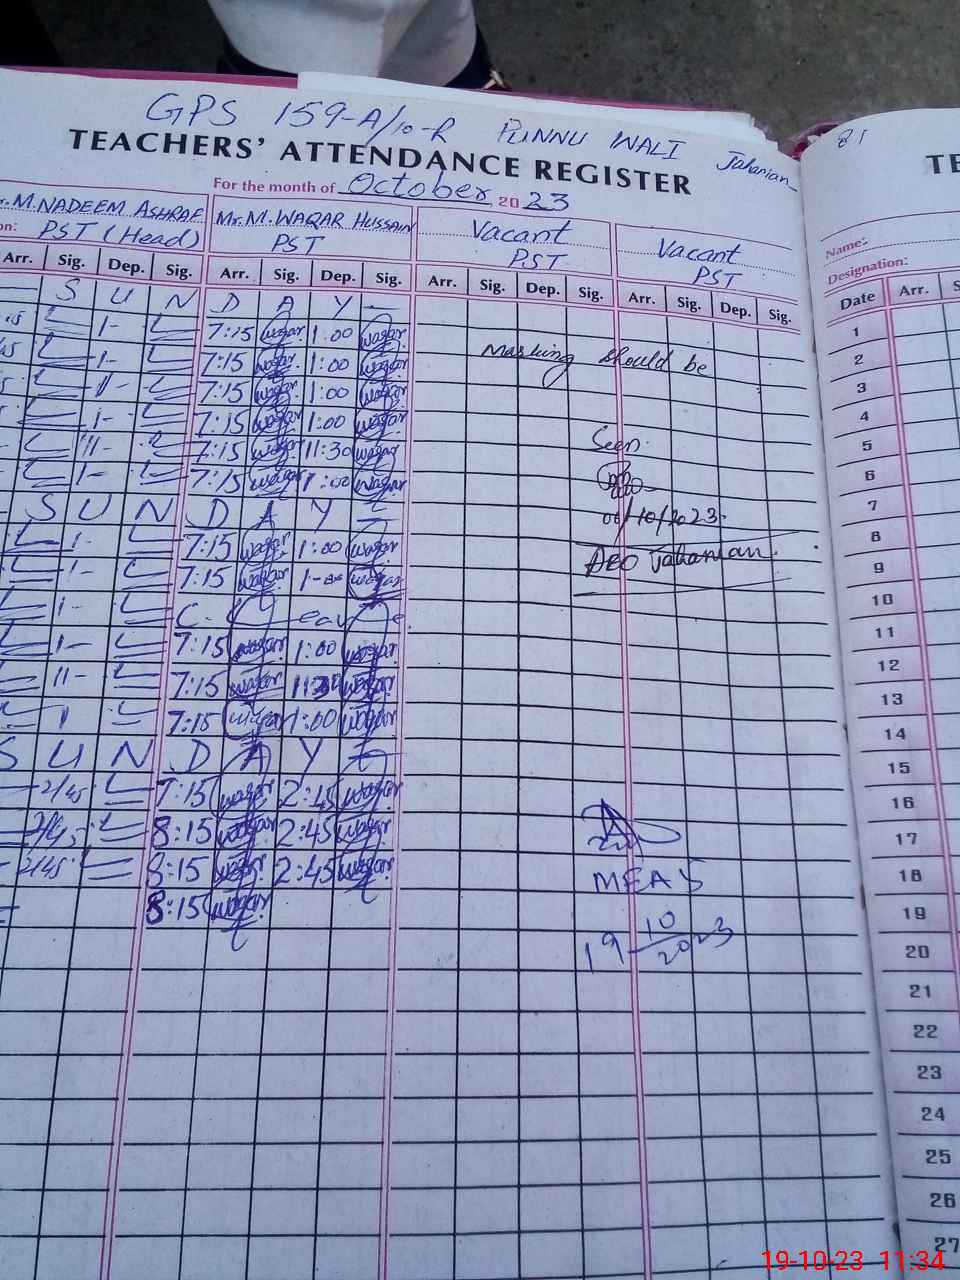 GPS 159-A/10-R PUNNU WALI Jahanian
81
TEACHERS' ATTENDANCE REGISTER
TE
For the month of October 2023
M.NADEEM ASHRAF Mr. M. WAQAR HUSSAIN Vacant Vacant
on: PST (Head) PST PST PST
Name:
Designation:
Arr. Sig. Dep. Sig. Arr. Sig. Dep. Sig. Arr. Sig. Dep. Sig. Arr. Sig. Dep. Sig. Date Arr.
S U N D A Y 1
7:15 waqar 1:00 waqar 2
7:15 waqar 1:00 waqar Marking should be 3
7:15 waqar 1:00 waqar 4
7:15 waqar 1:00 waqar 5
7:15 waqar 11:30 waqar Seen 6
7:15 waqar 1:00 waqar 7
S U N D A Y 06/10/2023 8
7:15 waqar 1:00 waqar DEO Jahanian 9
7:15 waqar 1-00 waqar 10
C. Leave 11
7:15 waqar 1:00 waqar 12
7:15 waqar 11:30 waqar 13
7:15 waqar 1:00 waqar 14
S U N D A Y 15
2/45 7:15 waqar 2:45 waqar 16
2/45 8:15 waqar 2:45 waqar 17
2/45 8:15 waqar 2:45 waqar MEAS 18
8:15 waqar 19
19 10/2023
20
21
22
23
24
25
26
27
19-10-23 11:34